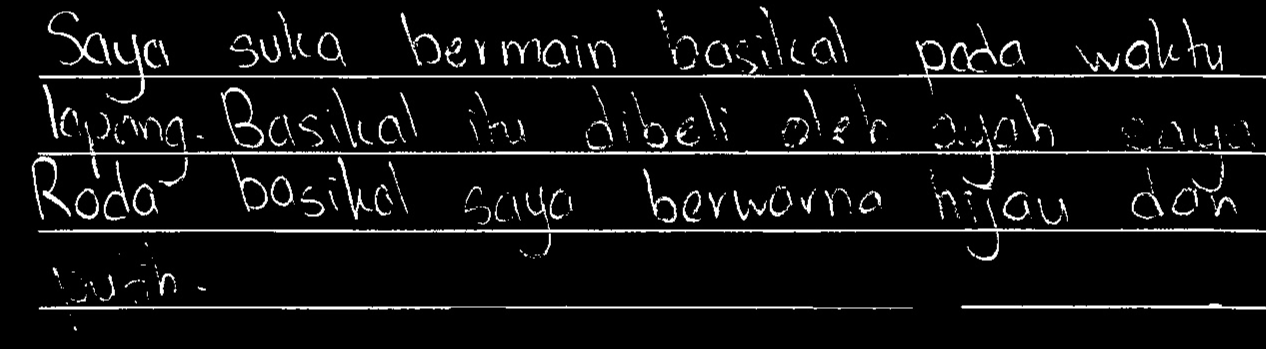 Saya suka bermain basikal pada waktu
lapang. Basikal itu dibeli oleh ayah saya
Roda basikal saya berwarna hijau dan
putih.